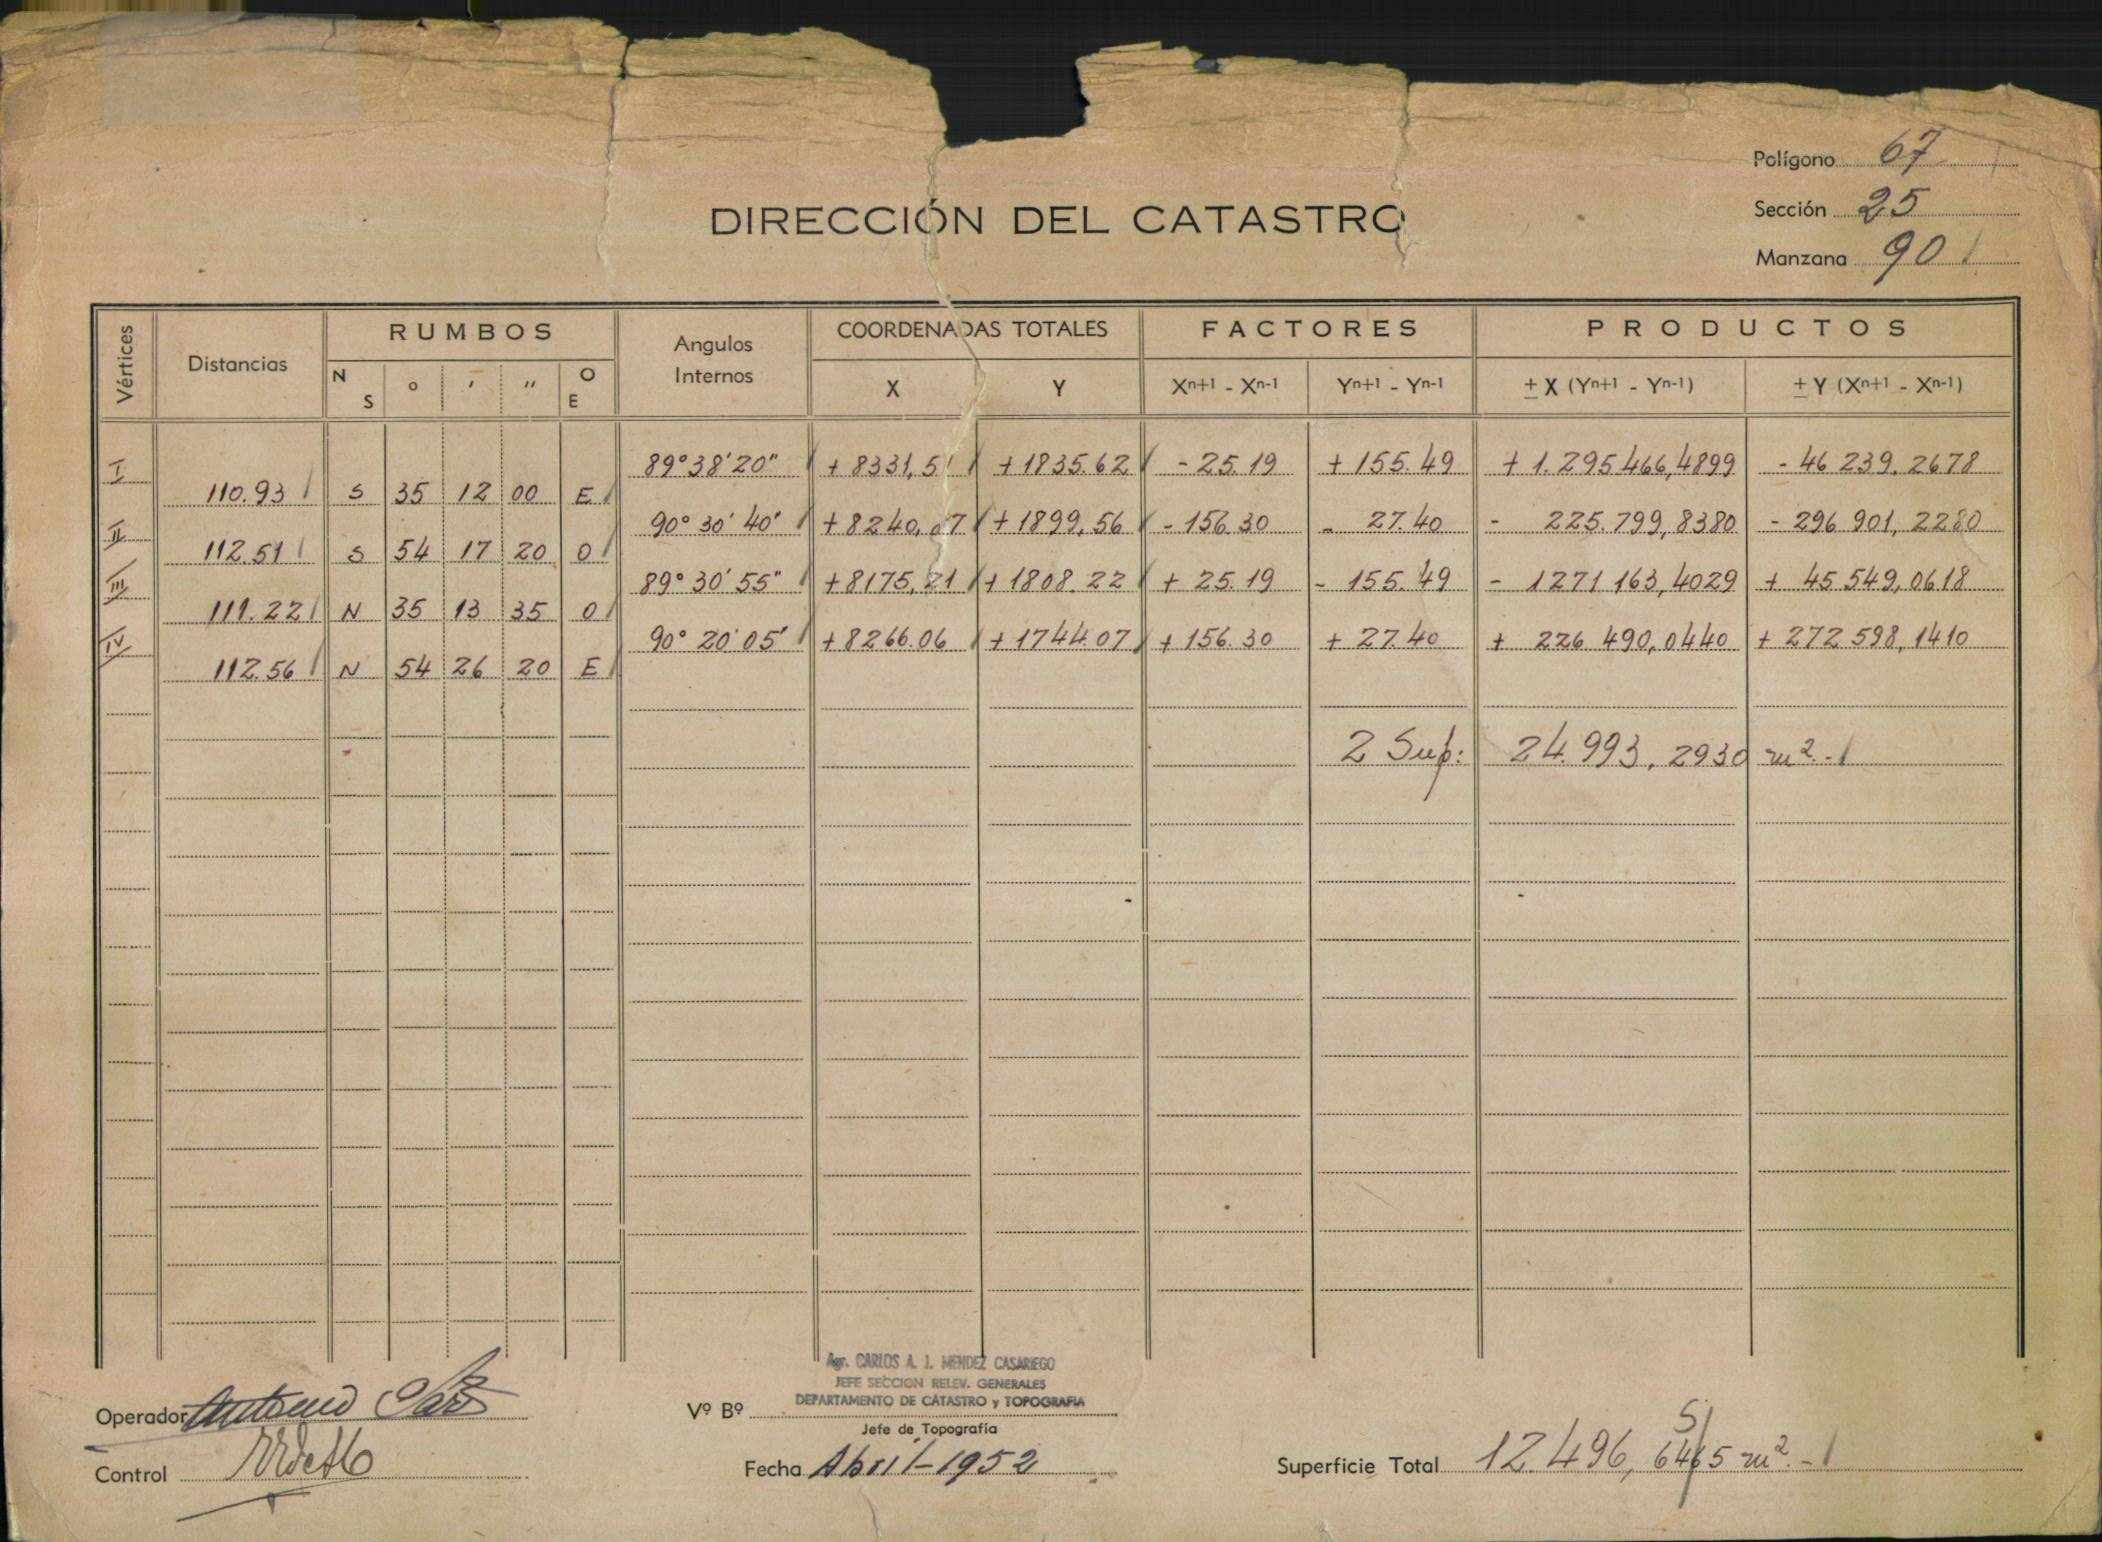 Polígono 67
Sección 25
Manzana 90
DIRECCIÓN DEL CATASTRO
Vértices Distancias RUMBOS Angulos Internos COORDENADAS TOTALES FACTORES PRODUCTOS
N S ° ' '' O E X Y Xⁿ⁺¹ - Xⁿ⁻¹ Yⁿ⁺¹ - Yⁿ⁻¹ ± X (Yⁿ⁺¹ - Yⁿ⁻¹) ± Y (Xⁿ⁺¹ - Xⁿ⁻¹)
I 89°38'20" + 8331,5 + 1835.62 - 25.19 + 155.49 + 1.295466,4899 - 46 239.2678
110.93 S 35 12 00 E
II 90° 30' 40" + 8240,07 + 1899,56 - 156.30 - 27.40 - 225.799,8380 - 296 901,2280
112.51 S 54 17 20 O
III 89° 30' 55" + 8175,21 + 1808.22 + 25.19 - 155.49 - 1271 163,4029 + 45 549,0618
111.22 N 35 13 35 O
IV 90° 20' 05" + 8266.06 + 1744.07 + 156.30 + 27.40 + 226 490,0440 + 272 598,1410
112.56 N 54 26 20 E
2 Sup: 24.993,2930 m².-
Agr. CARLOS A. J. MENDEZ CASARIEGO
JEFE SECCION RELEV. GENERALES
DEPARTAMENTO DE CATASTRO y TOPOGRAFIA
Operador Antonio
Vº Bº
Jefe de Topografía
Control
Fecha Abril-1952
Superficie Total 12.496, 6465 m².-